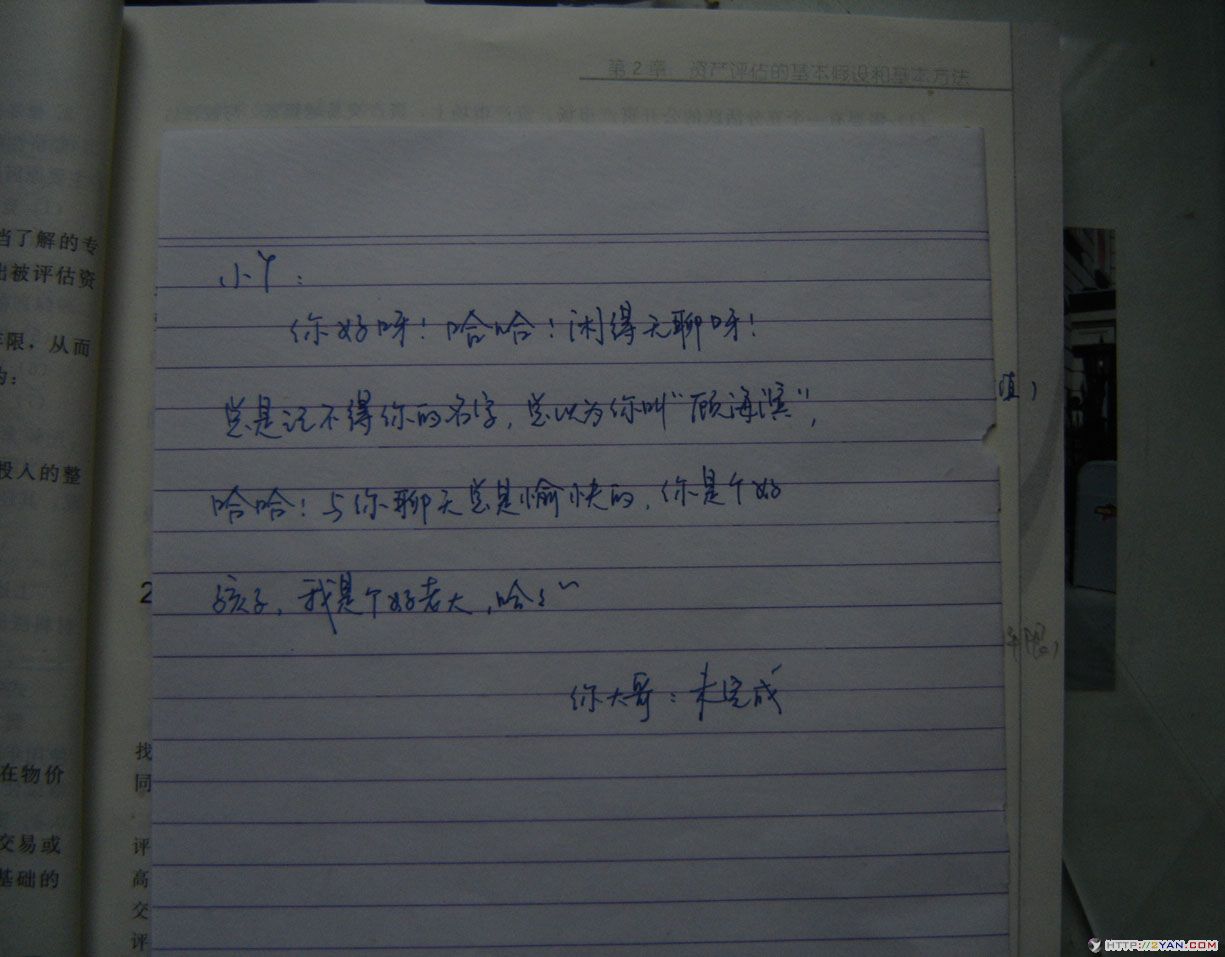 第2章 资产评估的基本假设和基本方法
当了解的专
出被评估资
年限，从而
为：
投入的整
在物价
交易或
基础的
小丫：
你好呀！哈哈！闲得无聊呀！
总是记不得你的名字，总以为你叫“顾海滨”，
哈哈！与你聊天总是愉快的，你是个好
孩子，我是个好老大，哈
你大哥：未完成
值，
年限，
2
找
同
评
高
交
评
HTTP://2YAN.COM